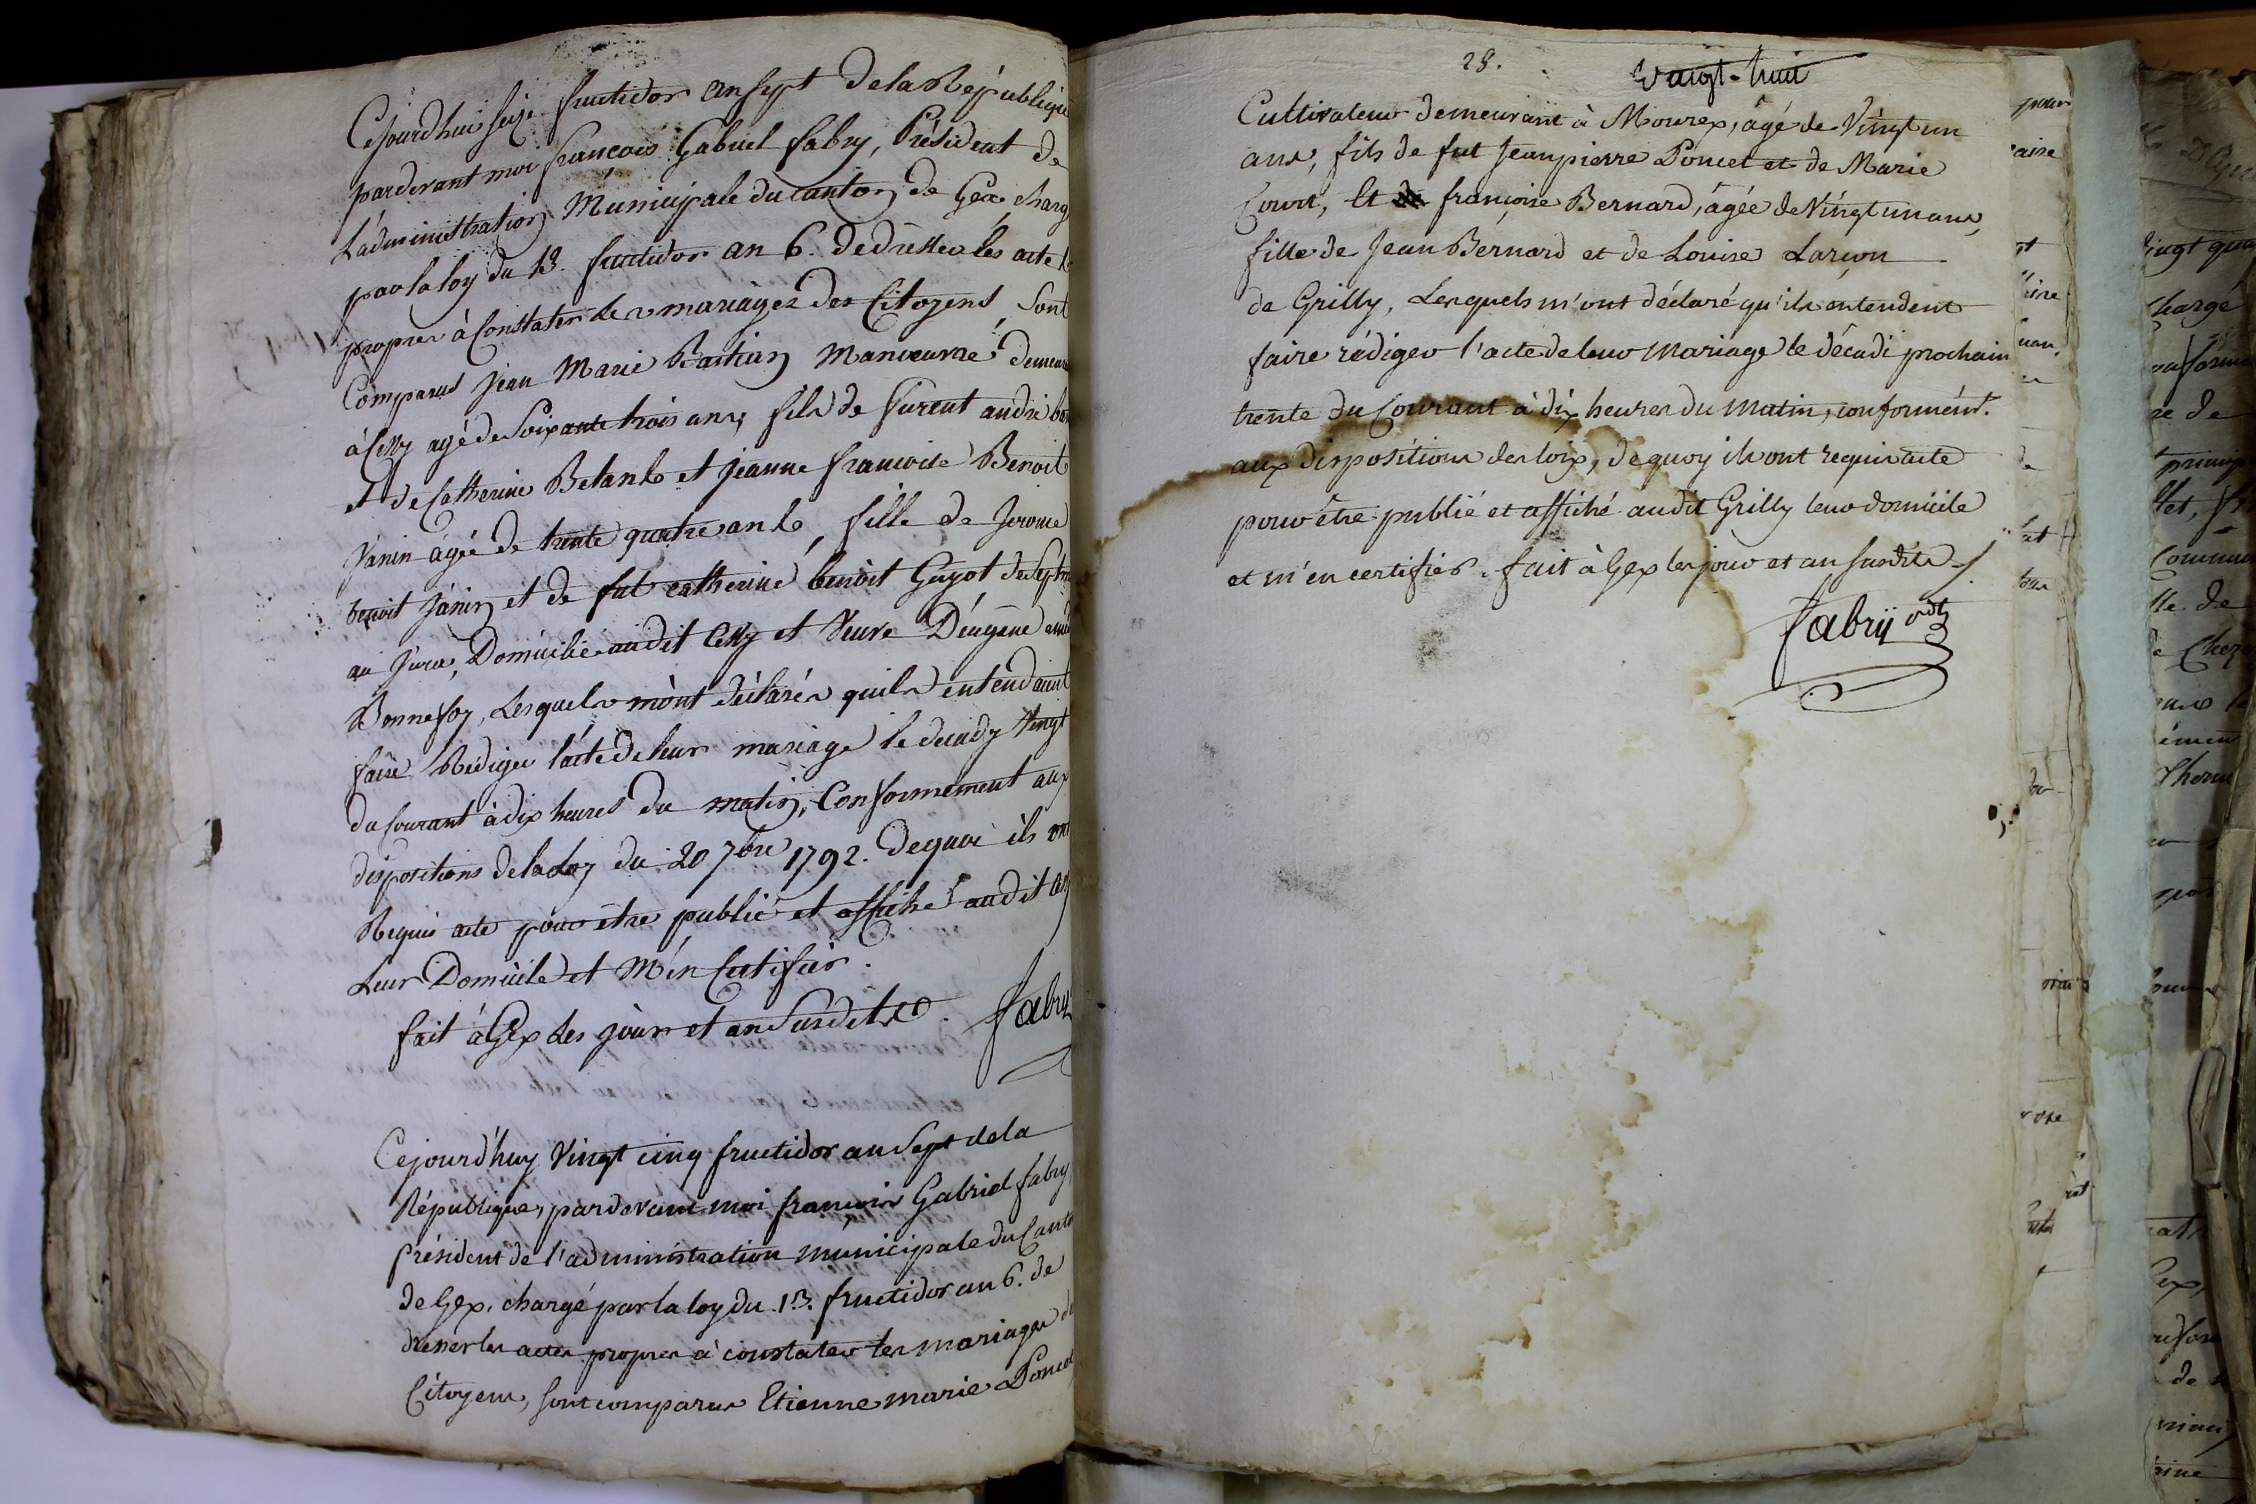 Cejourdhui seize fructidor an sept de la République
pardevant moi francois Gabriel fabry, Président de
L'administration Municipale du canton de Gex charg
par la loy du 13. fructidor an 6. de dresser les acte
propres à Constater les mariages des Citoyens, Sont
Comparus Jean Marie Bastian Manoeuvre demeur
à Cessy agé de Soixante trois ans, fils de furent andré
et de Catherine et jeanne francoise Benoit
Janin agée de trente quatre ans, fille de Jerome
benoit Janin et de fut catherine benoit Guyot de Sept
au Jura, Domicilié audit Cessy et Veuve D'eugene
Bonnefoy, Lesquels m'ont déclarés quils entendaint
faire Rédiger l'acte de leur mariage le decady Vingt
du Courant à dix heures du matin, Conformement aux
dispositions de la loy du 20 7bre 1792. de quoi ils ont
Requis acte pour être publié et affiché audit
Leur Domicile et M'en Certifier.
fait à Gex Les jour et an Susdit
fabry
Cejourd'huy Vingt cinq fructidor an Sept de la
République, pardevant moi françois Gabriel fabry
Président de l'administration municipale du Canto
de Gex, chargé par la loy du 13. fructidor an 6. de
dresser les actes propres à constater les mariages de
Citoyens, sont comparus Etienne marie Poncet
28. Vingt-huit
Cultivateur demeurant à Mourex, âgé de Vingt un
ans, fils de fut Jean pierre Poncet et de Marie
Court, Et françoise Bernard, âgée de Vingt un ans,
fille de Jean Bernard et de Louise Larçon
de Grilly, Lesquels m'ont déclaré qu'ils entendent
faire rédiger l'acte de leur Mariage le décadi prochain
trente du Courant à dix heures du Matin, conformémt.
aux dispositions des loix, de quoy ils ont requis acte
pour être publié et affiché audit Grilly leur domicile
et m'en certifier. fait à Gex les jour et an susdits
fabry pdt